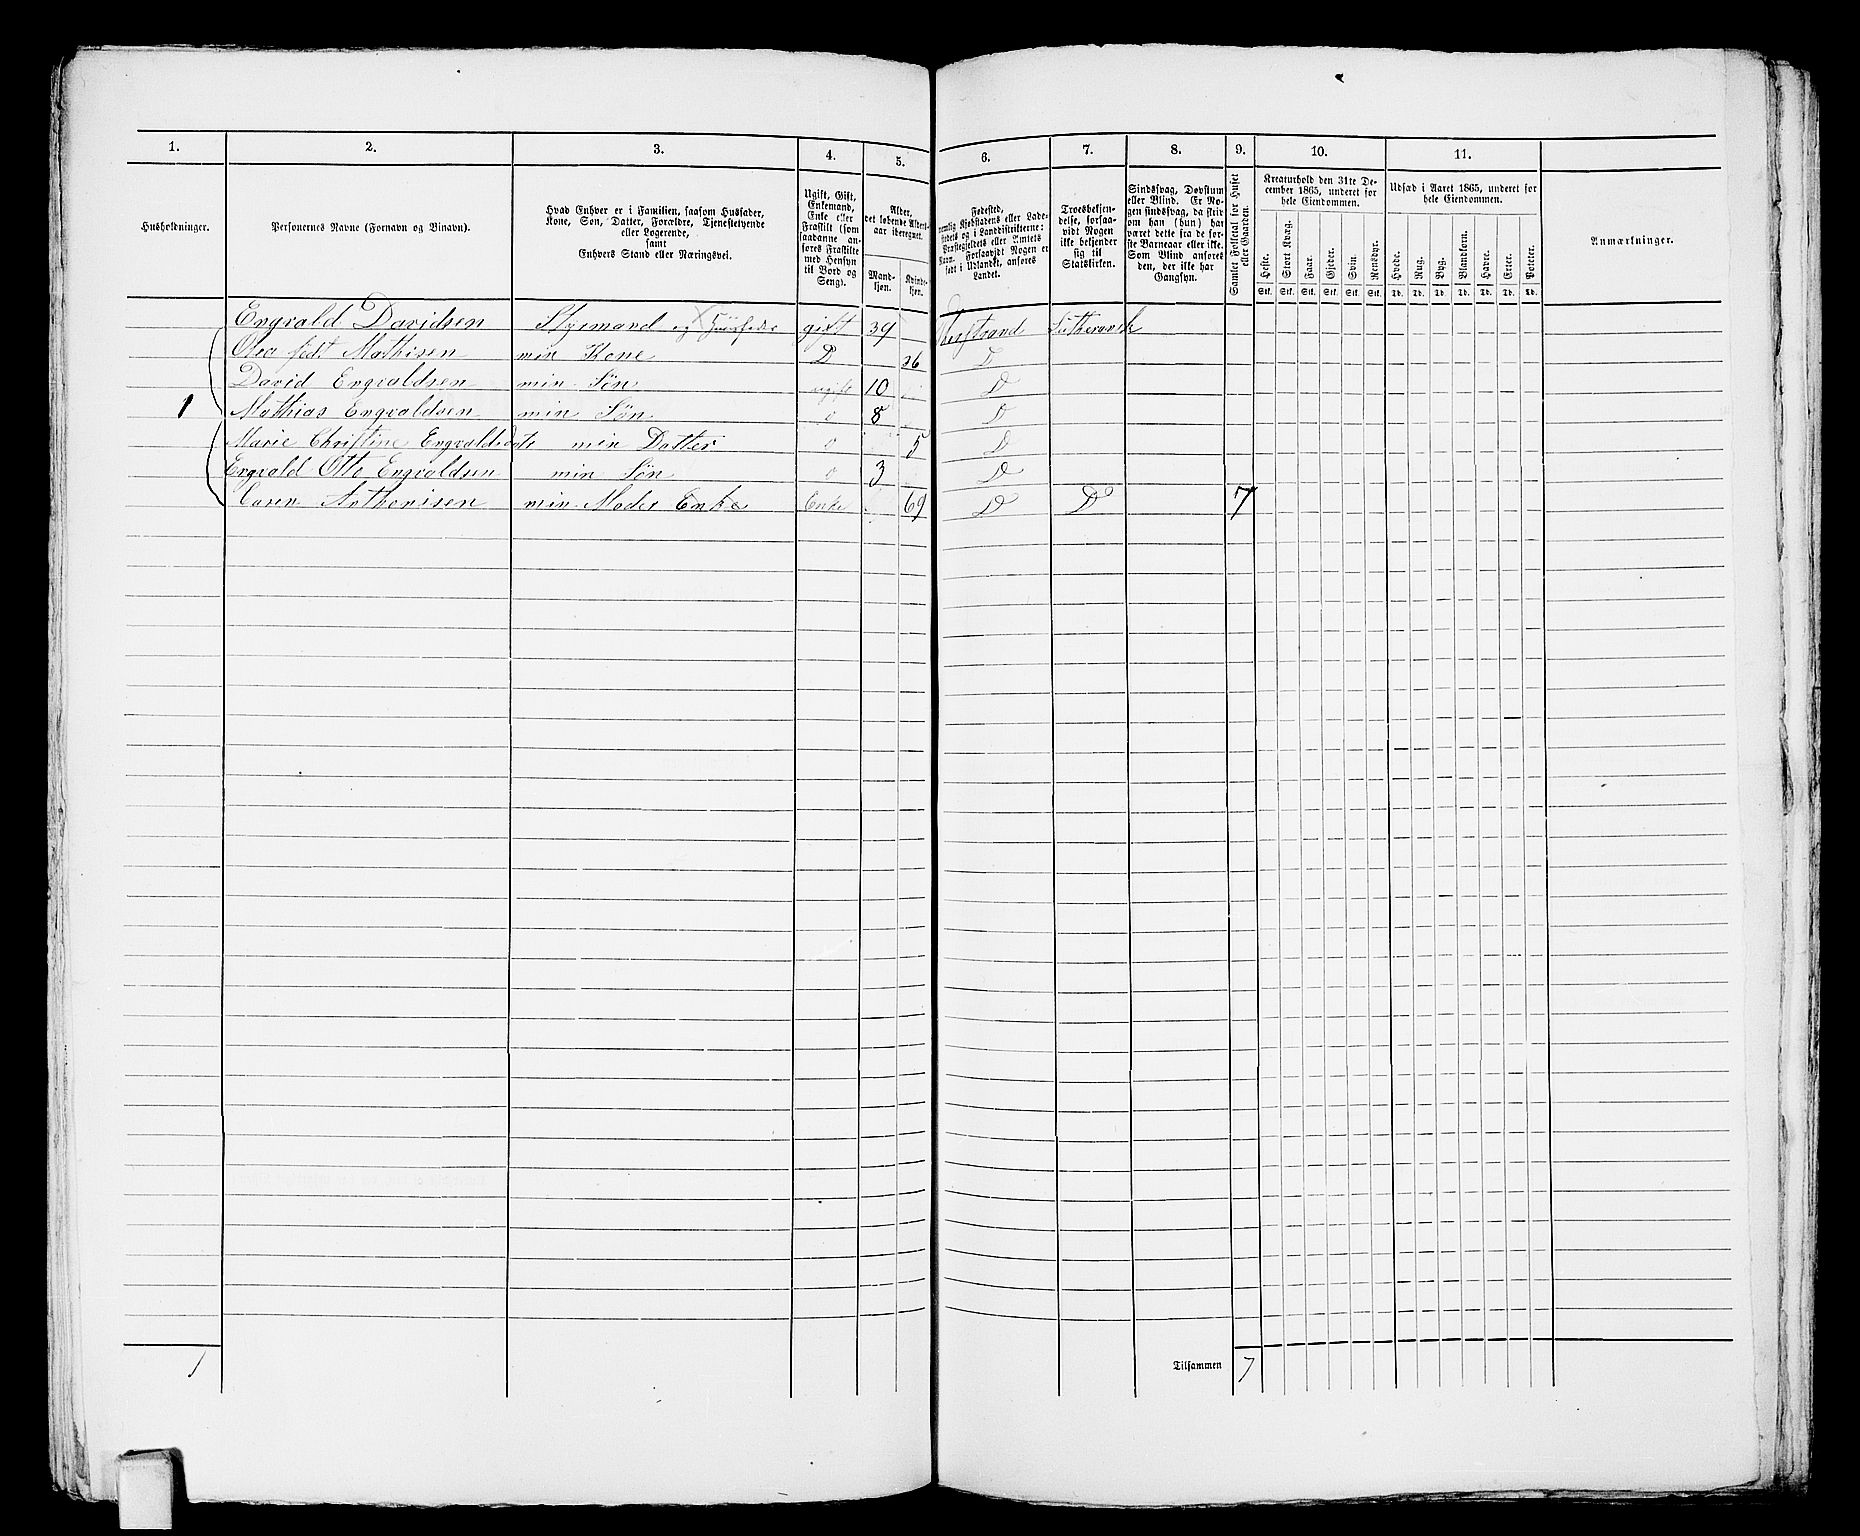 1. 2. 3. 4. 5. 6. 7. 8. 9. 10. 11.
Husholdninger.
Personernes Navne (Fornavn og Binavn).
Hvad Enhver er i Familien, saasom Husfader,
Kone, Søn, Datter, Forældre, Tjenestetyende
eller Logerende,
samt
Enhvers Stand eller Næringsvei.
Ugift, Gift,
Enkemand,
Enke eller
Fraskilt (som
saadanne an-
føres Fraskilte
med Hensyn
til Bord og
Seng).
Alder,
det løbende Alders-
aar iberegnet.
Mand-
kjøn.
Kvinde-
kjøn.
Fødested,
nemlig Kjøbstadens eller Lade-
stedets og i Landdistrikterne:
Præstegjeldets eller Amtets
Navn. Forsaavidt Nogen er
født i Udlandet, anføres
Landet.
Troesbekjen-
delse, forsaa-
vidt Nogen
ikke bekjender
sig til
Statskirken.
Sindssvag, Døvstum
eller Blind. Er No-
gen sindssvag, da skriv
om han (hun) har
været dette fra de før-
ste Barneaar eller ikke.
Som Blind anføres
den, der ikke har
Gangsyn.
Samlet Folketal for Huset
eller Gaarden.
Kreaturhold den 31te De-
cember 1865, underet for
hele Eiendommen.
Heste. Stort Kvæg. Faar. Gjeder. Svin. Rensdyr.
Stk. Stk. Stk. Stk. Stk. Stk.
Udsæd i Aaret 1865, underet for
hele Eiendommen.
Hvede. Rug. Byg. Blandkorn. Havre. Erter. Poteter.
Td. Td. Td. Td. Td. Td. Td.
Anmærkninger.
Engvald Davidsen Styrmand og Huusfader gift 39 Lutheransk
Olea født Mathisen min Kone D 36 D
David Engvaldsen min Søn ugift 10 D
1 Mathias Engvaldsen min Søn o 8 D
Marie Christine Engvaldsdatr min Datter o 5 D
Engvald Otto Engvaldsen min Søn o 3 D
Caren Anthonisen min Moder Enke Enke 69 D D 7
1 Tilsammen 7